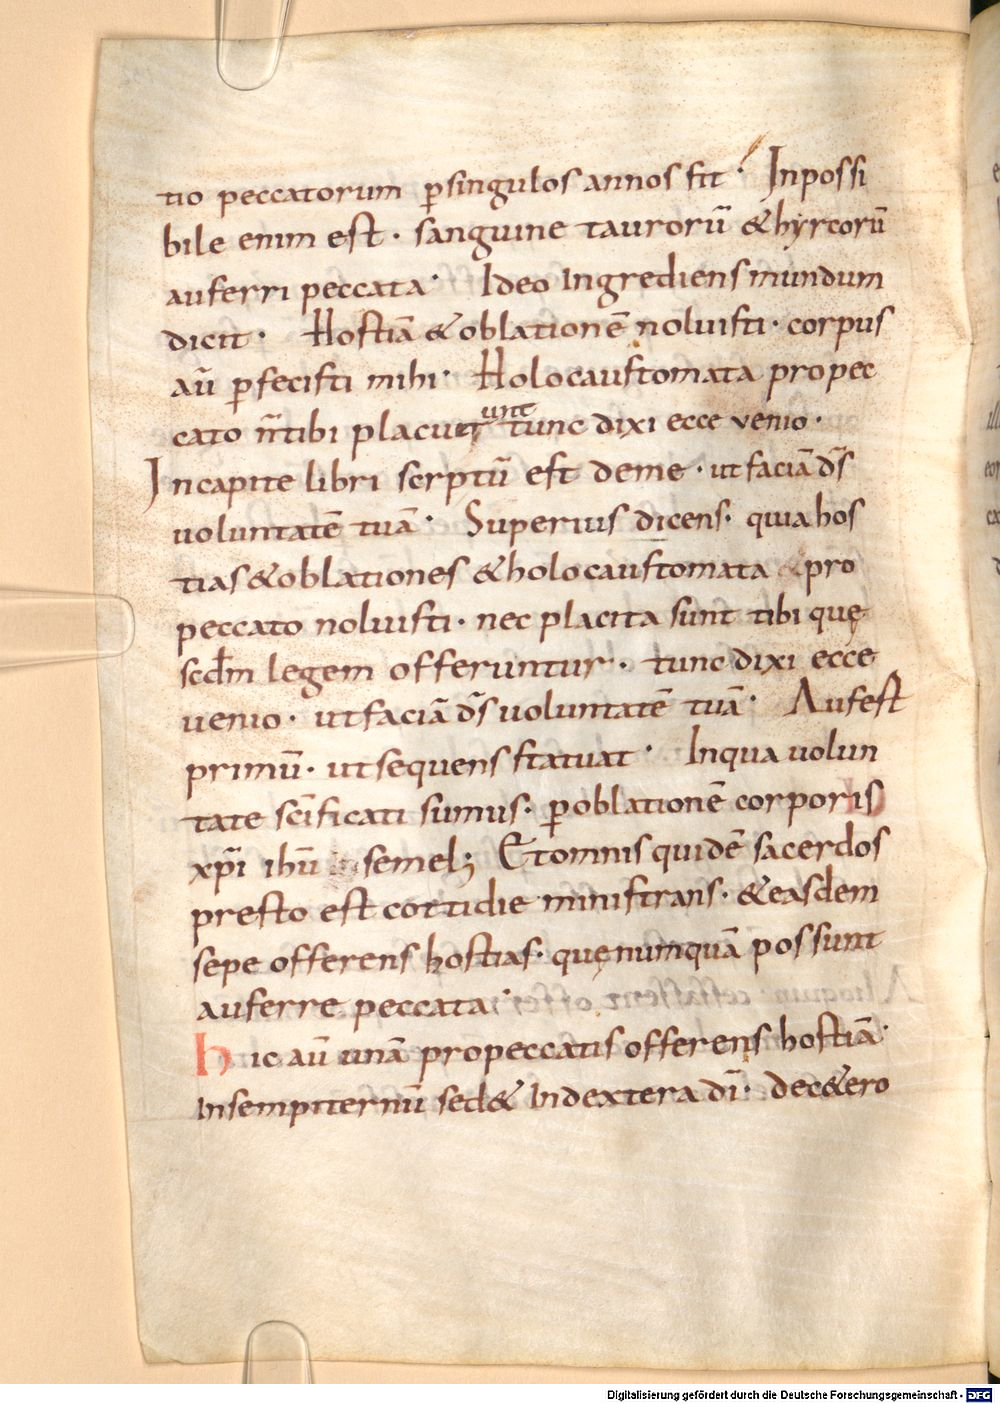 tio peccatorum ꝑsingulos annos fit · Inpossi
bile enim est · sanguine taurorū & hyrcorū
auferri peccata · Ideo Ingrediens mundum
dicit · Hostiā & oblationē noluisti · corpus
aū ꝑfecisti mihi · Holocaustomata propec
cato n̄ tibi placuerunt tunc dixi ecce venio ·
Incapite libri scrptū est deme · ut faciā d̄s
voluntatē tuā · Superius dicens · quia hos
tias & oblationes & holocaustomata & pro
peccato noluisti · nec placita sunt tibi quę
scd̄m legem offeruntur · tunc dixi ecce
venio · ut faciā d̄s voluntatē tuā · Aufest
primū · ut sequens statuat · Inqua volun
tate sc̄ificati sumus · ꝑoblationē corporis
xp̄i ihū semel; Et omnis quidē sacerdos
presto est cottidie ministrans · & easdem
sepe offerens hostias · quę numquā possunt
auferre peccata ·
hic aū unā propeccatis offerens hostiā ·
Insempiternū sed& Indextera dī · dec&ero
Digitalisierung gefördert durch die Deutsche Forschungsgemeinschaft - DFG